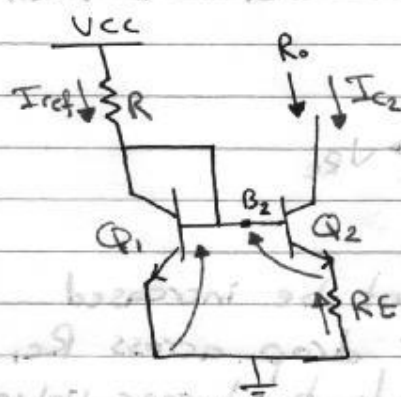 VCC
Ro
Iref R
Ic2
B2
Q1 Q2
RE